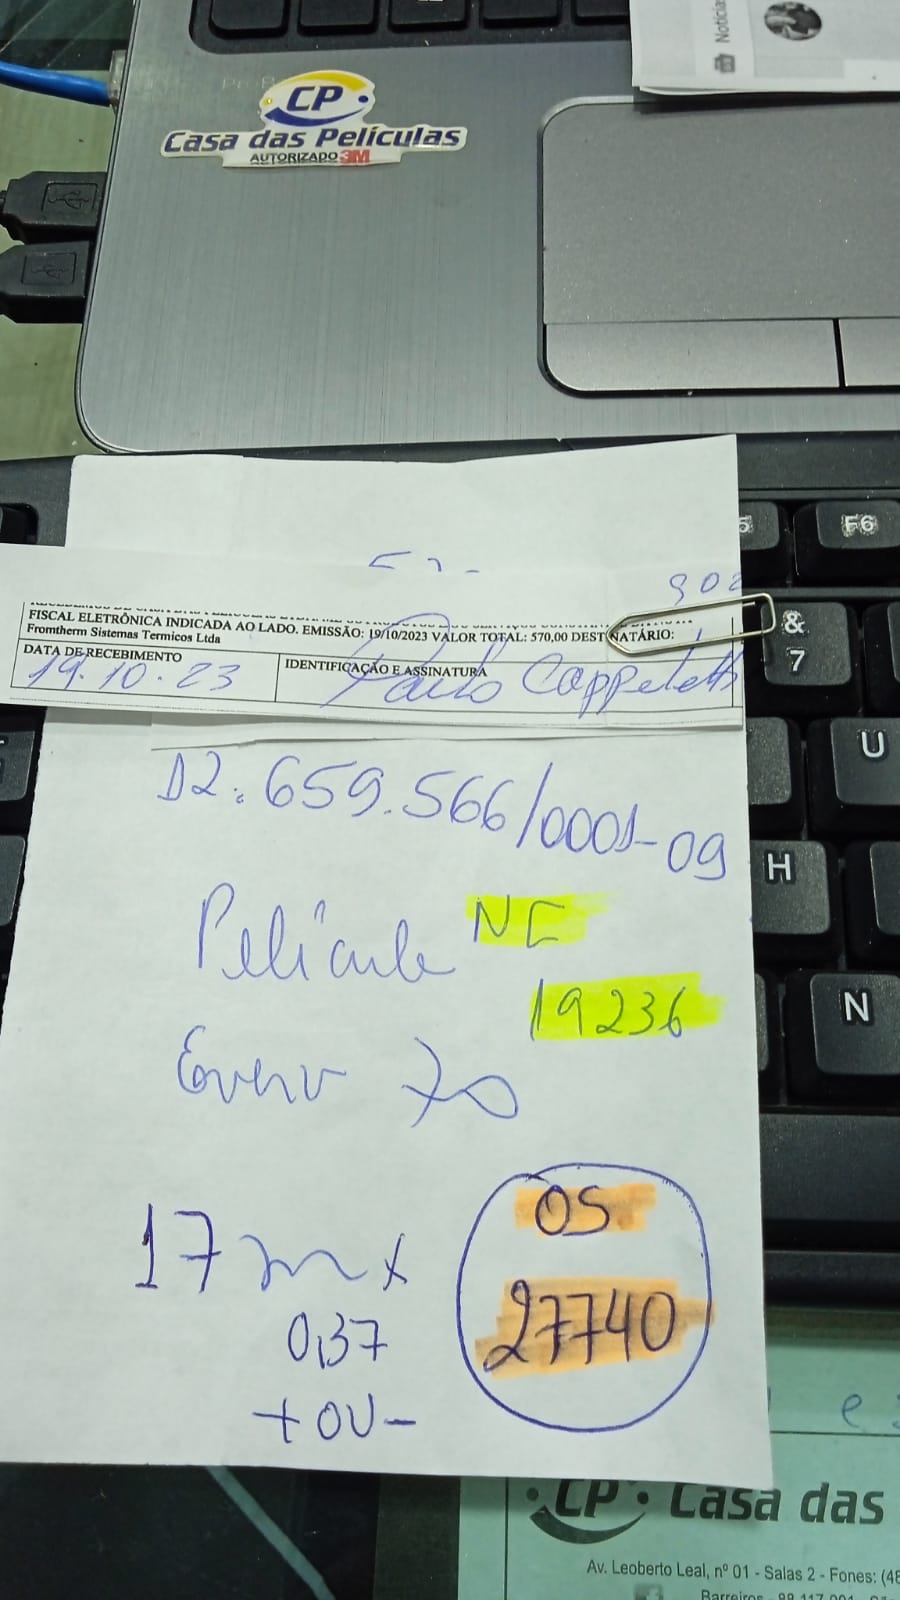 Notícia
CP
Casa das Películas
AUTORIZADO 3M
F6
&
7
U
H
N
902
FISCAL ELETRÔNICA INDICADA AO LADO. EMISSÃO: 19/10/2023 VALOR TOTAL: 570,00 DESTINATÁRIO:
Fromtherm Sistemas Termicos Ltda
DATA DE RECEBIMENTO
19.10.23
IDENTIFICAÇÃO E ASSINATURA
Paulo Cappeletti
12.659.566/0001-09
Película
19236
70
17 m x
0,37
+ OU -
OS.
27740
CP Casa das
Av. Leoberto Leal, nº 01 - Salas 2 - Fones: (48
Barreiros - 88.117.001